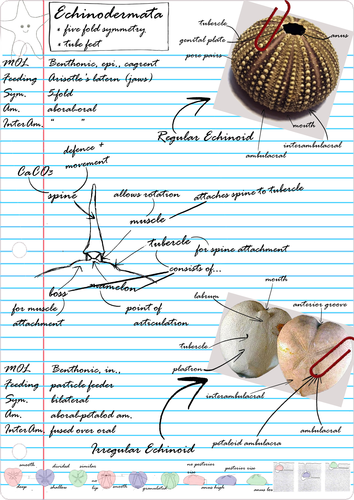 Echinodermata
• five fold symmetry
• tube feet
tubercle
genital plate
pore pairs
anus
mouth
interambulacral
ambulacral
Regular Echinoid
MOL Benthonic, epi., cagrent
Feeding Arisotle's latern (jaws)
Sym. 5-fold
Am. aboral-oral
InterAm. " "
defence +
movement
CaCO3
spine
allows rotation
attaches spine to tubercle
muscle
tubercle
for spine attachment
consists of...
boss
mamelon
for muscle
attachment
point of
articulation
mouth
labrum
anterior groove
tubercle
plastron
interambulacral
ambulacral
petaloid ambulacra
Irregular Echinoid
MOL Benthonic, in.,
Feeding particle feeder
Sym. bilateral
Am. aboral-petalod am.
InterAm. fused over oral
smooth
deep
divided
shallow
similar
no
lip
smooth
granulated
no posterior
rise
anus high
posterior
rise
anus low